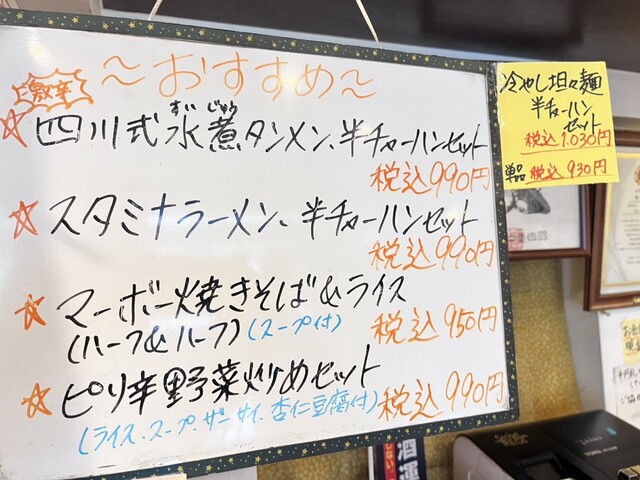 〜おすすめ〜
激辛
ずい じゅう
四川式水煮タンメン、半チャーハンセット
税込990円
スタミナラーメン、半チャーハンセット
税込990円
マーボー焼きそば&ライス
(ハーフ&ハーフ)(スープ付)
税込950円
ピリ辛野菜炒めセット
(ライス、スープ、ザーサイ、杏仁豆腐付)
税込990円
冷やし坦々麺
半チャーハン
セット
税込1,030円
単品 税込930円